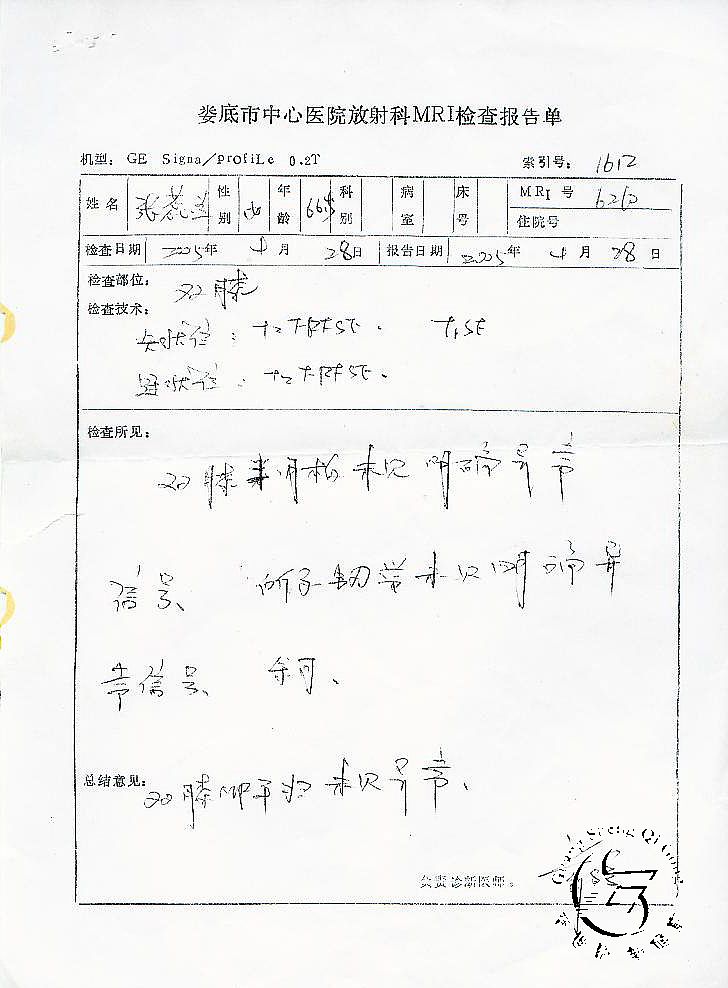 娄底市中心医院放射科MRI检查报告单
机型: GE Signa/Profile 0.2T 索引号: 1612
姓名 张 性别 女 年龄 66岁 科别 病室 床号 MRI号
住院号
检查日期 2005年 4月 28日 报告日期 2005年 4月 28日
检查部位: 双膝
检查技术:
矢状位: T2 T1SE
冠状位: T2
检查所见:
双膝半月板未见明确异常
信号、 所示韧带未见明确异
常信号、 余可、
总结意见: 双膝MR平扫未见异常、
负责诊断医师:
Guang Sheng Qi Gong